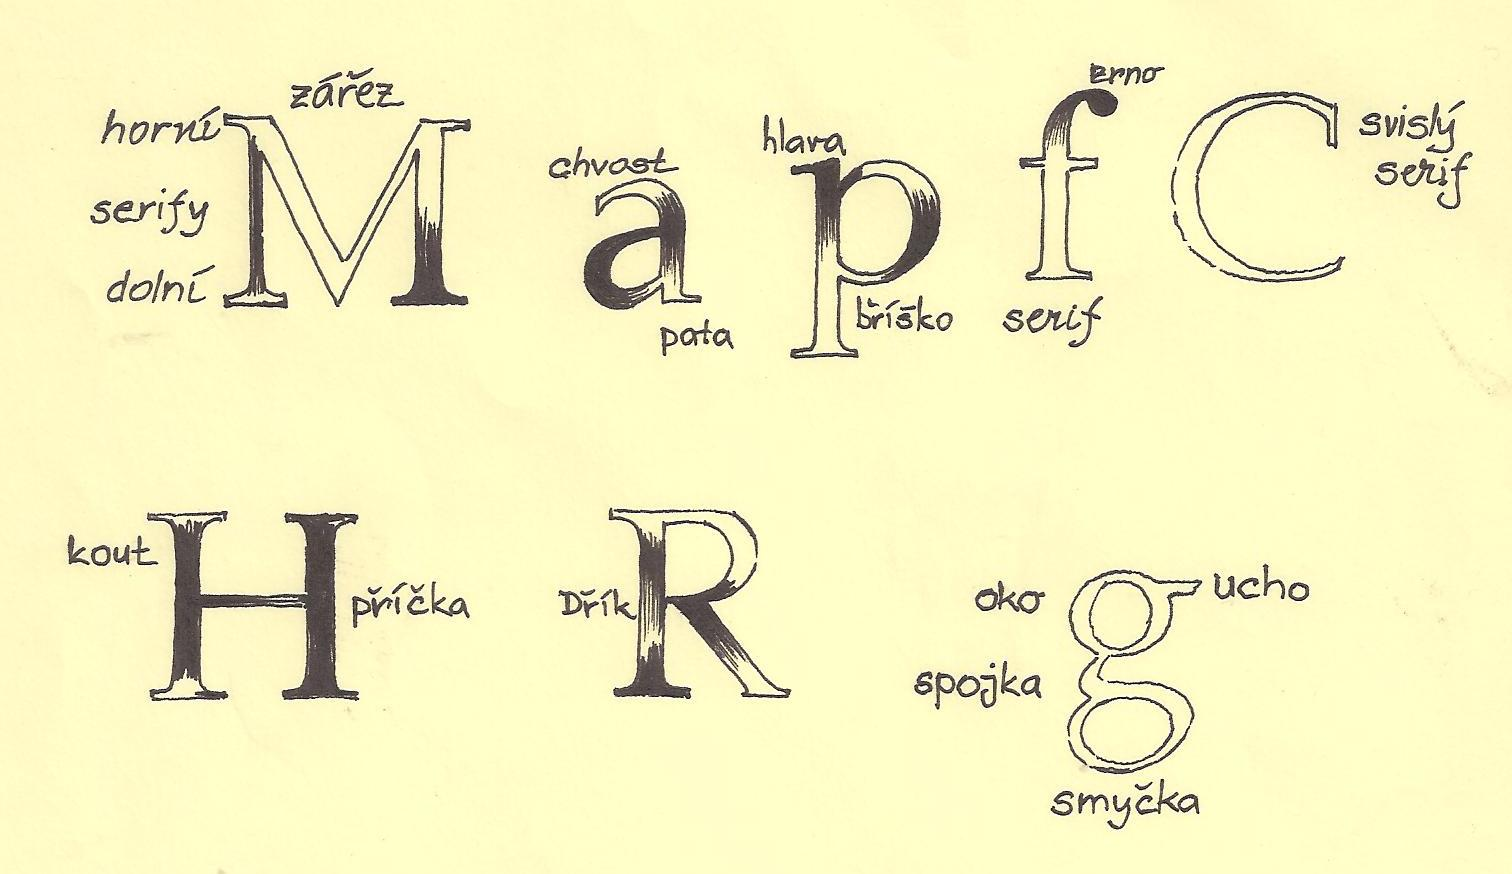 zářez
horní
serify
dolní
M
chvost
a
pata
hlava
p
bříško
zrno
f
serif
C
svislý
serif
kout
H
příčka
Dřík
R
oko
g
ucho
spojka
smyčka